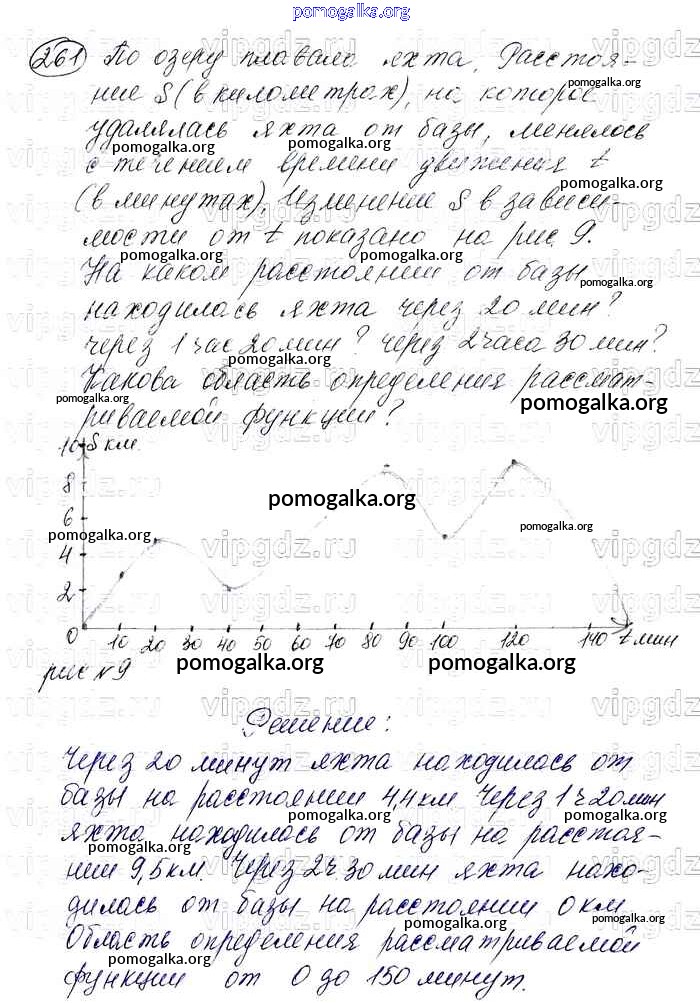 pomogalka.org
261 По озеру плавала яхта. Расстоя-
ние S (в километрах), на которое
удалялась яхта от базы, менялось
с течением времени движения t
(в минутах). Изменение S в зависи-
мости от t показано на рис 9.
На каком расстоянии от базы
находилась яхта через 20 мин?
через 1 час 20 мин? через 2 часа 30 мин?
Какова область определения рассмат-
риваемой функции?
pomogalka.org
10 S км
8
pomogalka.org
6
pomogalka.org
pomogalka.org
4
2
0 10 20 30 40 50 60 70 80 90 100 120 140 t мин
рис № 9
pomogalka.org
pomogalka.org
Решение:
Через 20 минут яхта находилась от
базы на расстоянии 4,4 км Через 1 ч 20 мин
яхта находилась от базы на расстоя-
нии 9,5 км. Через 2 ч. 30 мин яхта нахо-
дилась от базы на расстоянии 0 км.
Область определения рассматриваемой
функции от 0 до 150 минут.